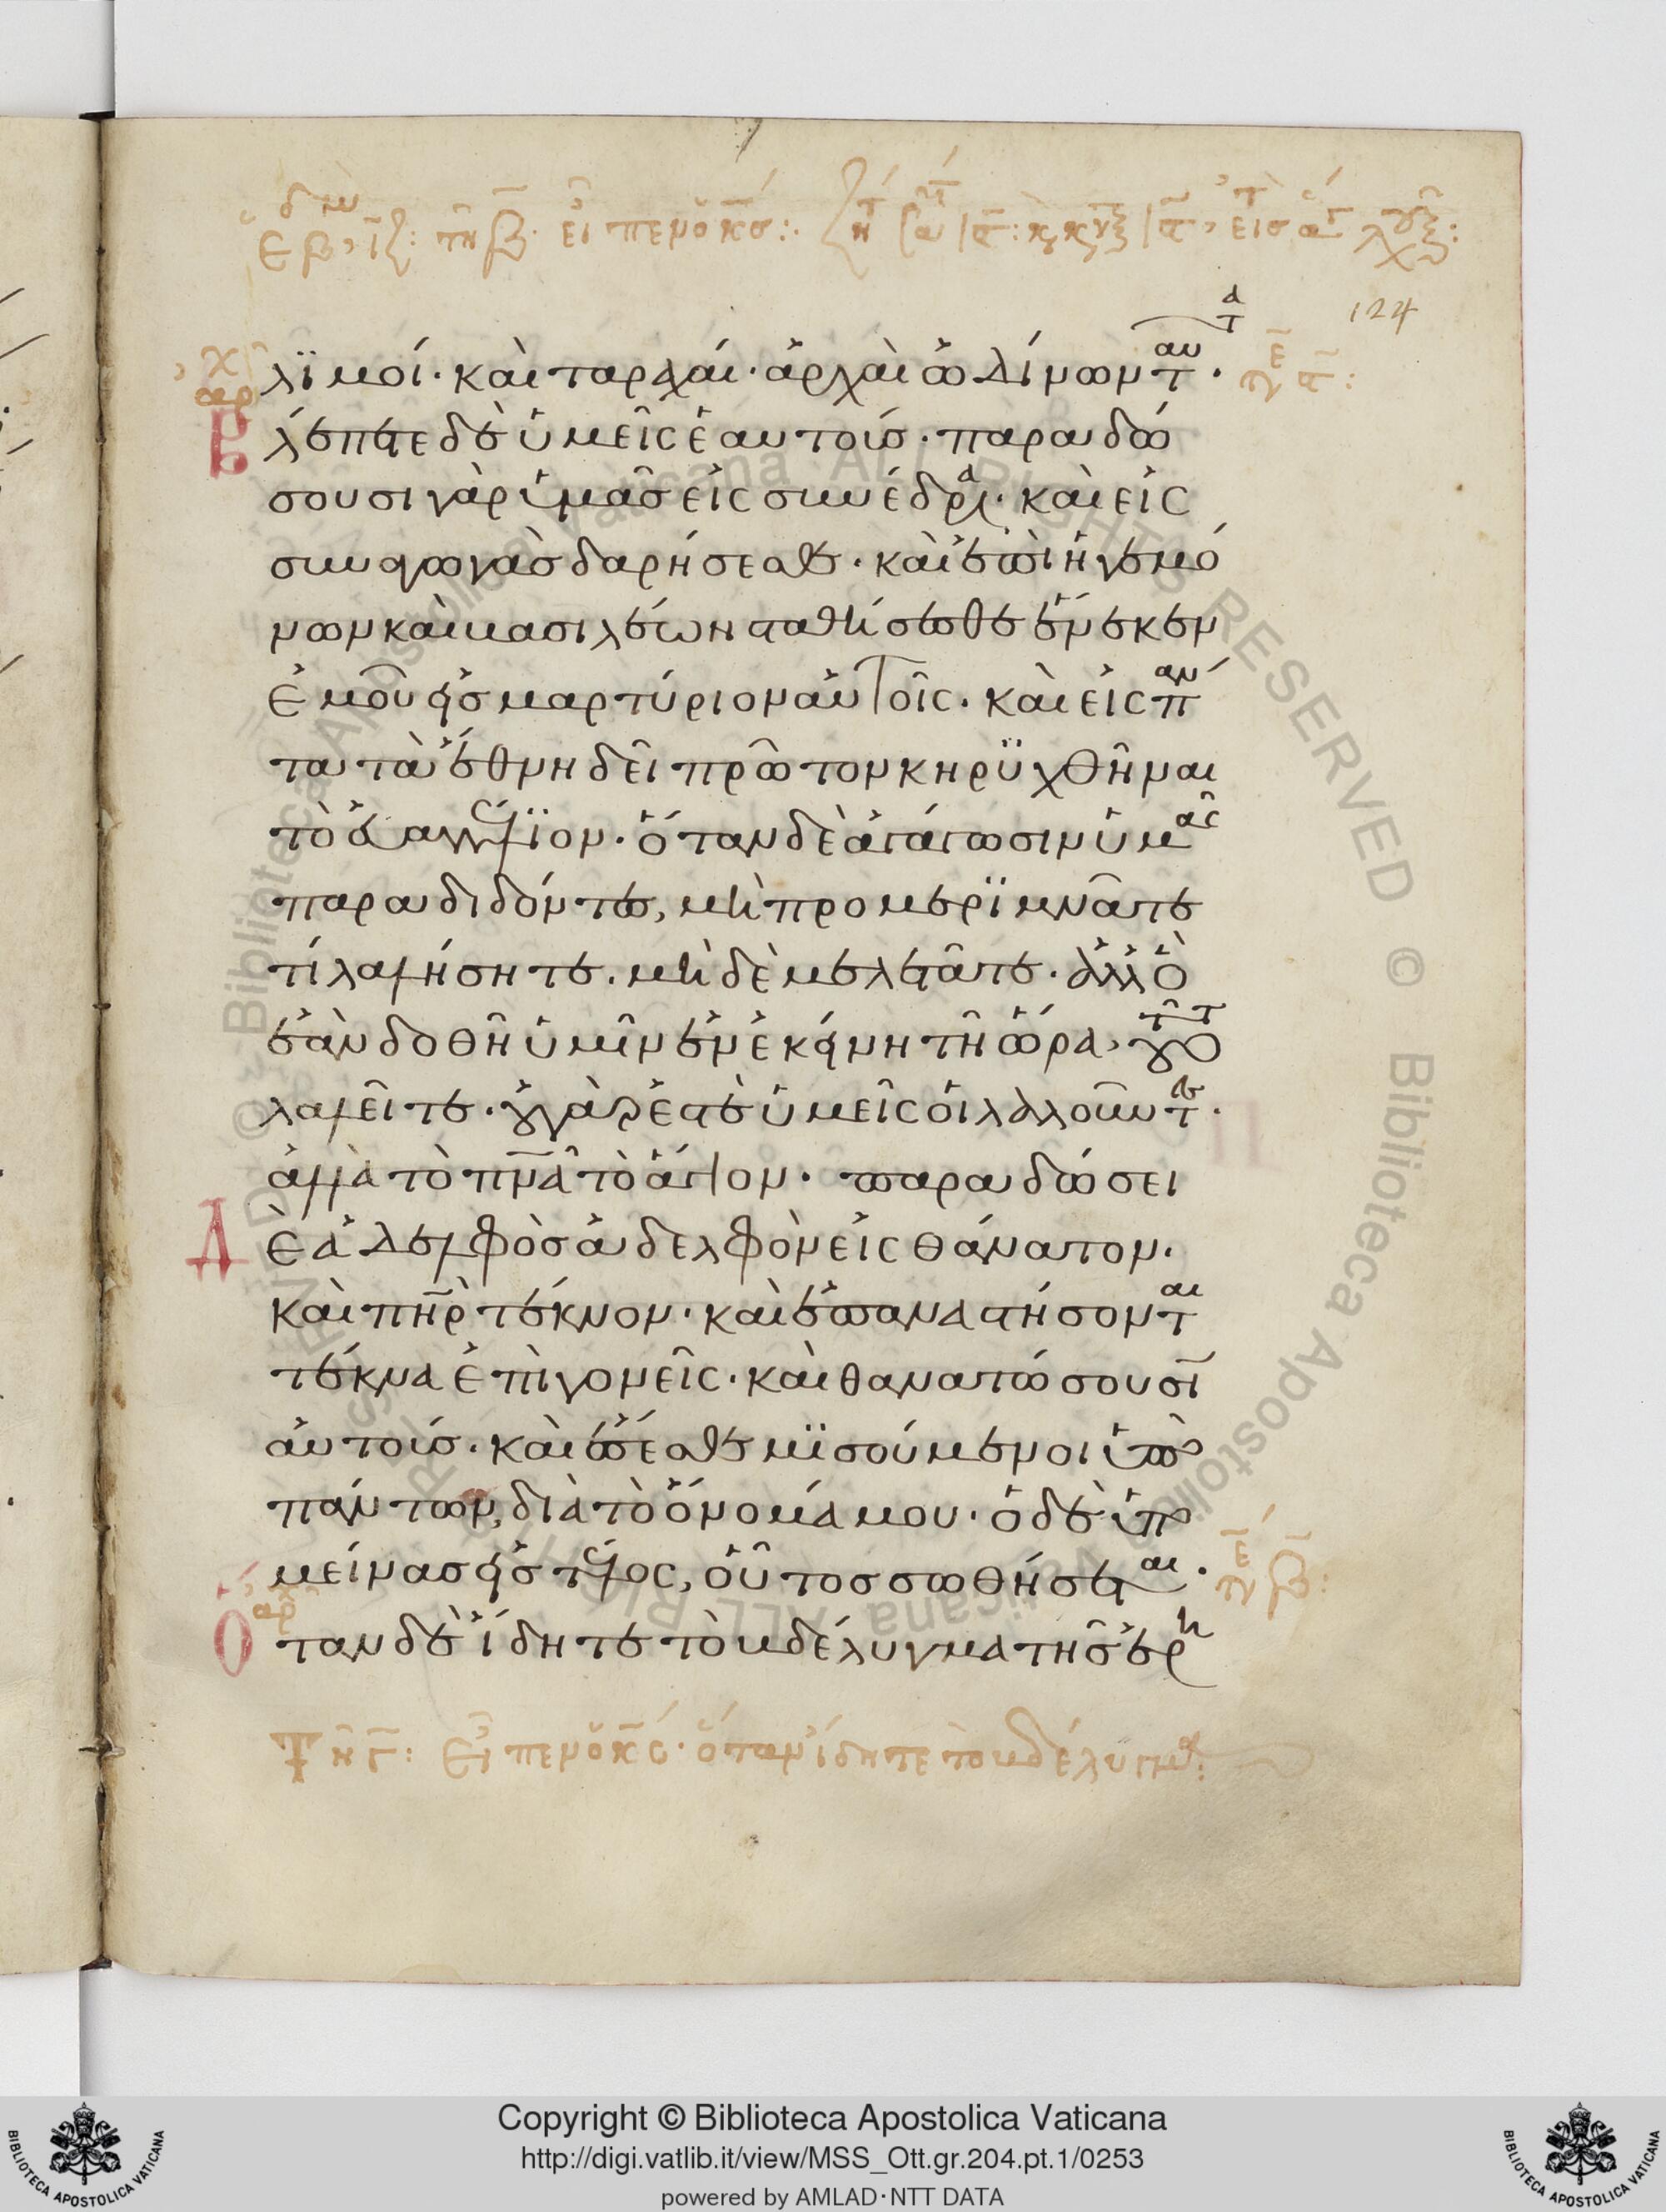 124
λϊμοί· καὶ ταραχαί· ἀρχαὶ ὠδίνων ταυτα·
Βλέπετε δὲ ὑμεῖς ἑαυτούς· παραδώ
σουσι γὰρ ὑμᾶς εἰς συνέδρια· καὶ εἰς
συναγωγὰς δαρήσεσθε· καὶ ἐπὶ ἡγεμό
νων καὶ βασιλέων σταθήσεσθε ἕνεκεν
ἐμοῦ εἰς μαρτύριον αὐτοῖς· καὶ εἰς πάν
τα τὰ ἔθνη δεῖ πρῶτον κηρϋχθῆναι
τὸ εὐαγγέλϊον· ὅταν δὲ ἀγάγωσιν ὑμᾶς
παραδιδόντες, μὴ προμερϊμνᾶτε
τί λαλήσητε. μὴ δὲ μελετᾶτε· ἀλλ ὃ
ἐὰν δοθῆ ὑμῖν ἐν ἐκείνη τῆ ὥρα, τοῦτο
λαλεῖτε· οὐ γὰρ ἐστὲ ὑμεῖς οἱ λαλοῦντες·
ἀλλὰ τὸ πνα τὸ ἅγιον· παραδώσει
Δὲ ἀδελφὸς ἀδελφὸν εἰς θάνατον·
καὶ πηρ τέκνον· καὶ ἐπαναστήσονται
τέκνα ἐπὶ γονεῖς· καὶ θανατώσουσι
αὐτούς· καὶ ἔσεσθε μϊσούμενοι ὑπὸ
πάντων, διὰ τὸ ὄνομά μου· ὁ δὲ ὑπο
μείνας εἰς τέλος, οὗτος σωθήσεται·
Ὅταν δὲ ἴδητε τὸ βδέλυγμα τῆς ἐρη
Τῆ γ: Εἶπεν ὁ κς· ὅταν ἴδητε τὸ βδέλυγμα:
Copyright © Biblioteca Apostolica Vaticana
http://digi.vatlib.it/view/MSS_Ott.gr.204.pt.1/0253
powered by AMLAD·NTT DATA
BIBLIOTECA APOSTOLICA VATICANA
BIBLIOTECA APOSTOLICA VATICANA